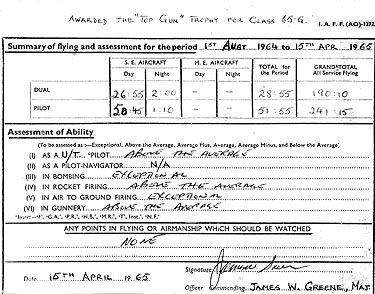 AWARDED THE "TOP GUN" TROPHY FOR CLASS 65-G.
I. A. F. F. (AO)-1272
Summary of flying and assessment for the period 1ST AUGT 1964 to 15TH APR 1965
S. E. AIRCRAFT M. E. AIRCRAFT TOTAL for the Period GRAND TOTAL All Service Flying
Day Night Day Night
DUAL 26:55 2:00 — — 28:55 190:10
PILOT 50:45 1:10 — — 51:55 241:15
Assessment of Ability
(To be assessed as :—Exceptional, Above the Average, Average Plus, Average, Average Minus, and Below the Average)
(I) AS A U/T *PILOT ABOVE THE AVERAGE
(II) AS A PILOT-NAVIGATOR N/A
(III) IN BOMBING EXCEPTIONAL
(IV) IN ROCKET FIRING ABOVE THE AVERAGE
(V) IN AIR TO GROUND FIRING EXCEPTIONAL
(VI) IN GUNNERY ABOVE THE AVERAGE
*Insert—'F', 'G.A.', 'P.R.', 'N.B.', 'M.R.', 'T', Inst.', 'N.F.'
ANY POINTS IN FLYING OR AIRMANSHIP WHICH SHOULD BE WATCHED
NONE
Signature
Date 15TH APRIL 1965
Officer Commanding JAMES W. GREENE, MAJ.